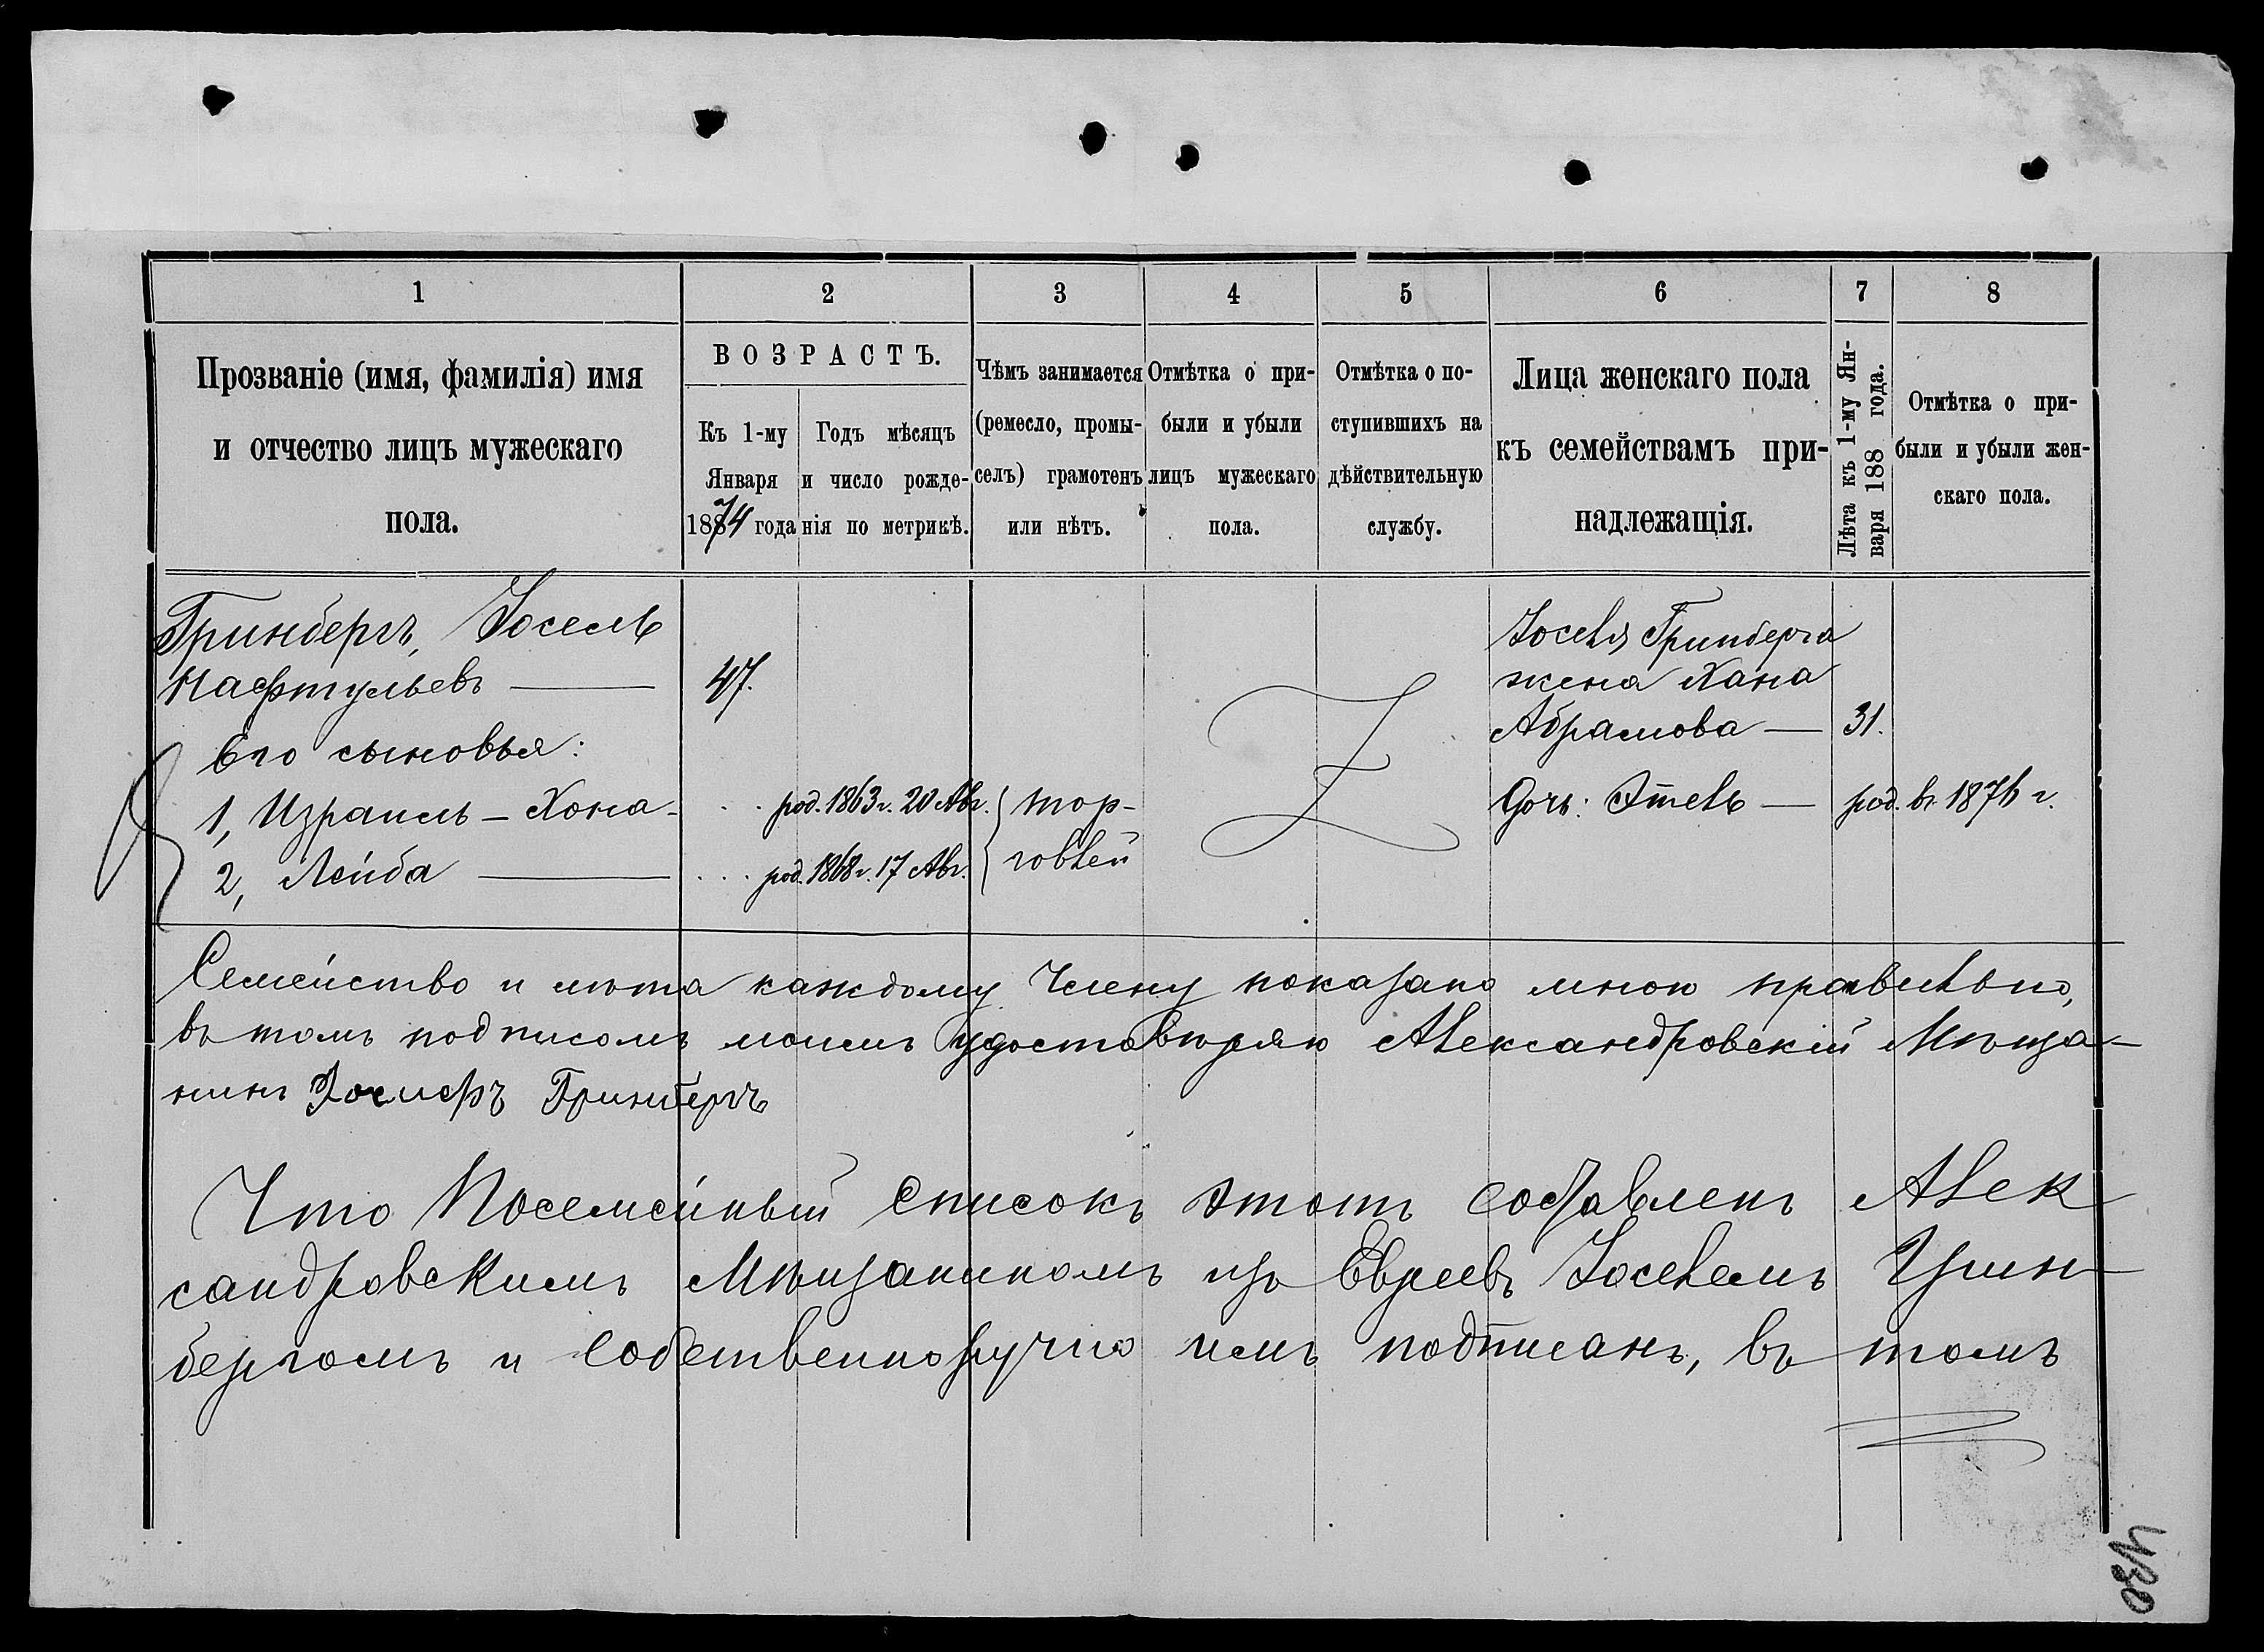 1 2 3 4 5 6 7 8
Прозваніе (имя, фамилія) имя
и отчество лицъ мужескаго
пола.
ВОЗРАСТЪ.
Къ 1-му
Января
1874 года
Годъ мѣсяцъ
и число рожде-
нія по метрикѣ.
Чѣмъ занимается
(ремесло, промы-
селъ) грамотенъ
или нѣтъ.
Отмѣтка о при-
были и убыли
лицъ мужескаго
пола.
Отмѣтка о по-
ступившихъ на
дѣйствительную
службу.
Лица женскаго пола
къ семействамъ при-
надлежащія.
Лѣта къ 1-му Ян-
варя 188 года.
Отмѣтка о при-
были и убыли жен-
скаго пола.
Гринбергъ, Іосель
Нафтульевъ — 47.
Его сыновья:
1, Израиль - Хона - род. 1863 г. 20 Авг.
2, Лейба — род. 1868 г. 17 Авг.
тор-
говлей
Іоселя Гринберга
жена Хана
Абрамова — 31.
Дочь: Этель — род. въ 1876 г.
Семейство и лѣта каждому члену показано мною правильно,
въ томъ подписомъ моимъ удостовѣряю Александровскій Мѣща-
нинъ Іосифъ Гринбергъ
Что Посемейный списокъ этотъ составленъ Алек
сандровскимъ Мѣщаниномъ изъ Евреевъ Іоселемъ Грин-
бергомъ и собственноручно имъ подписанъ, въ томъ